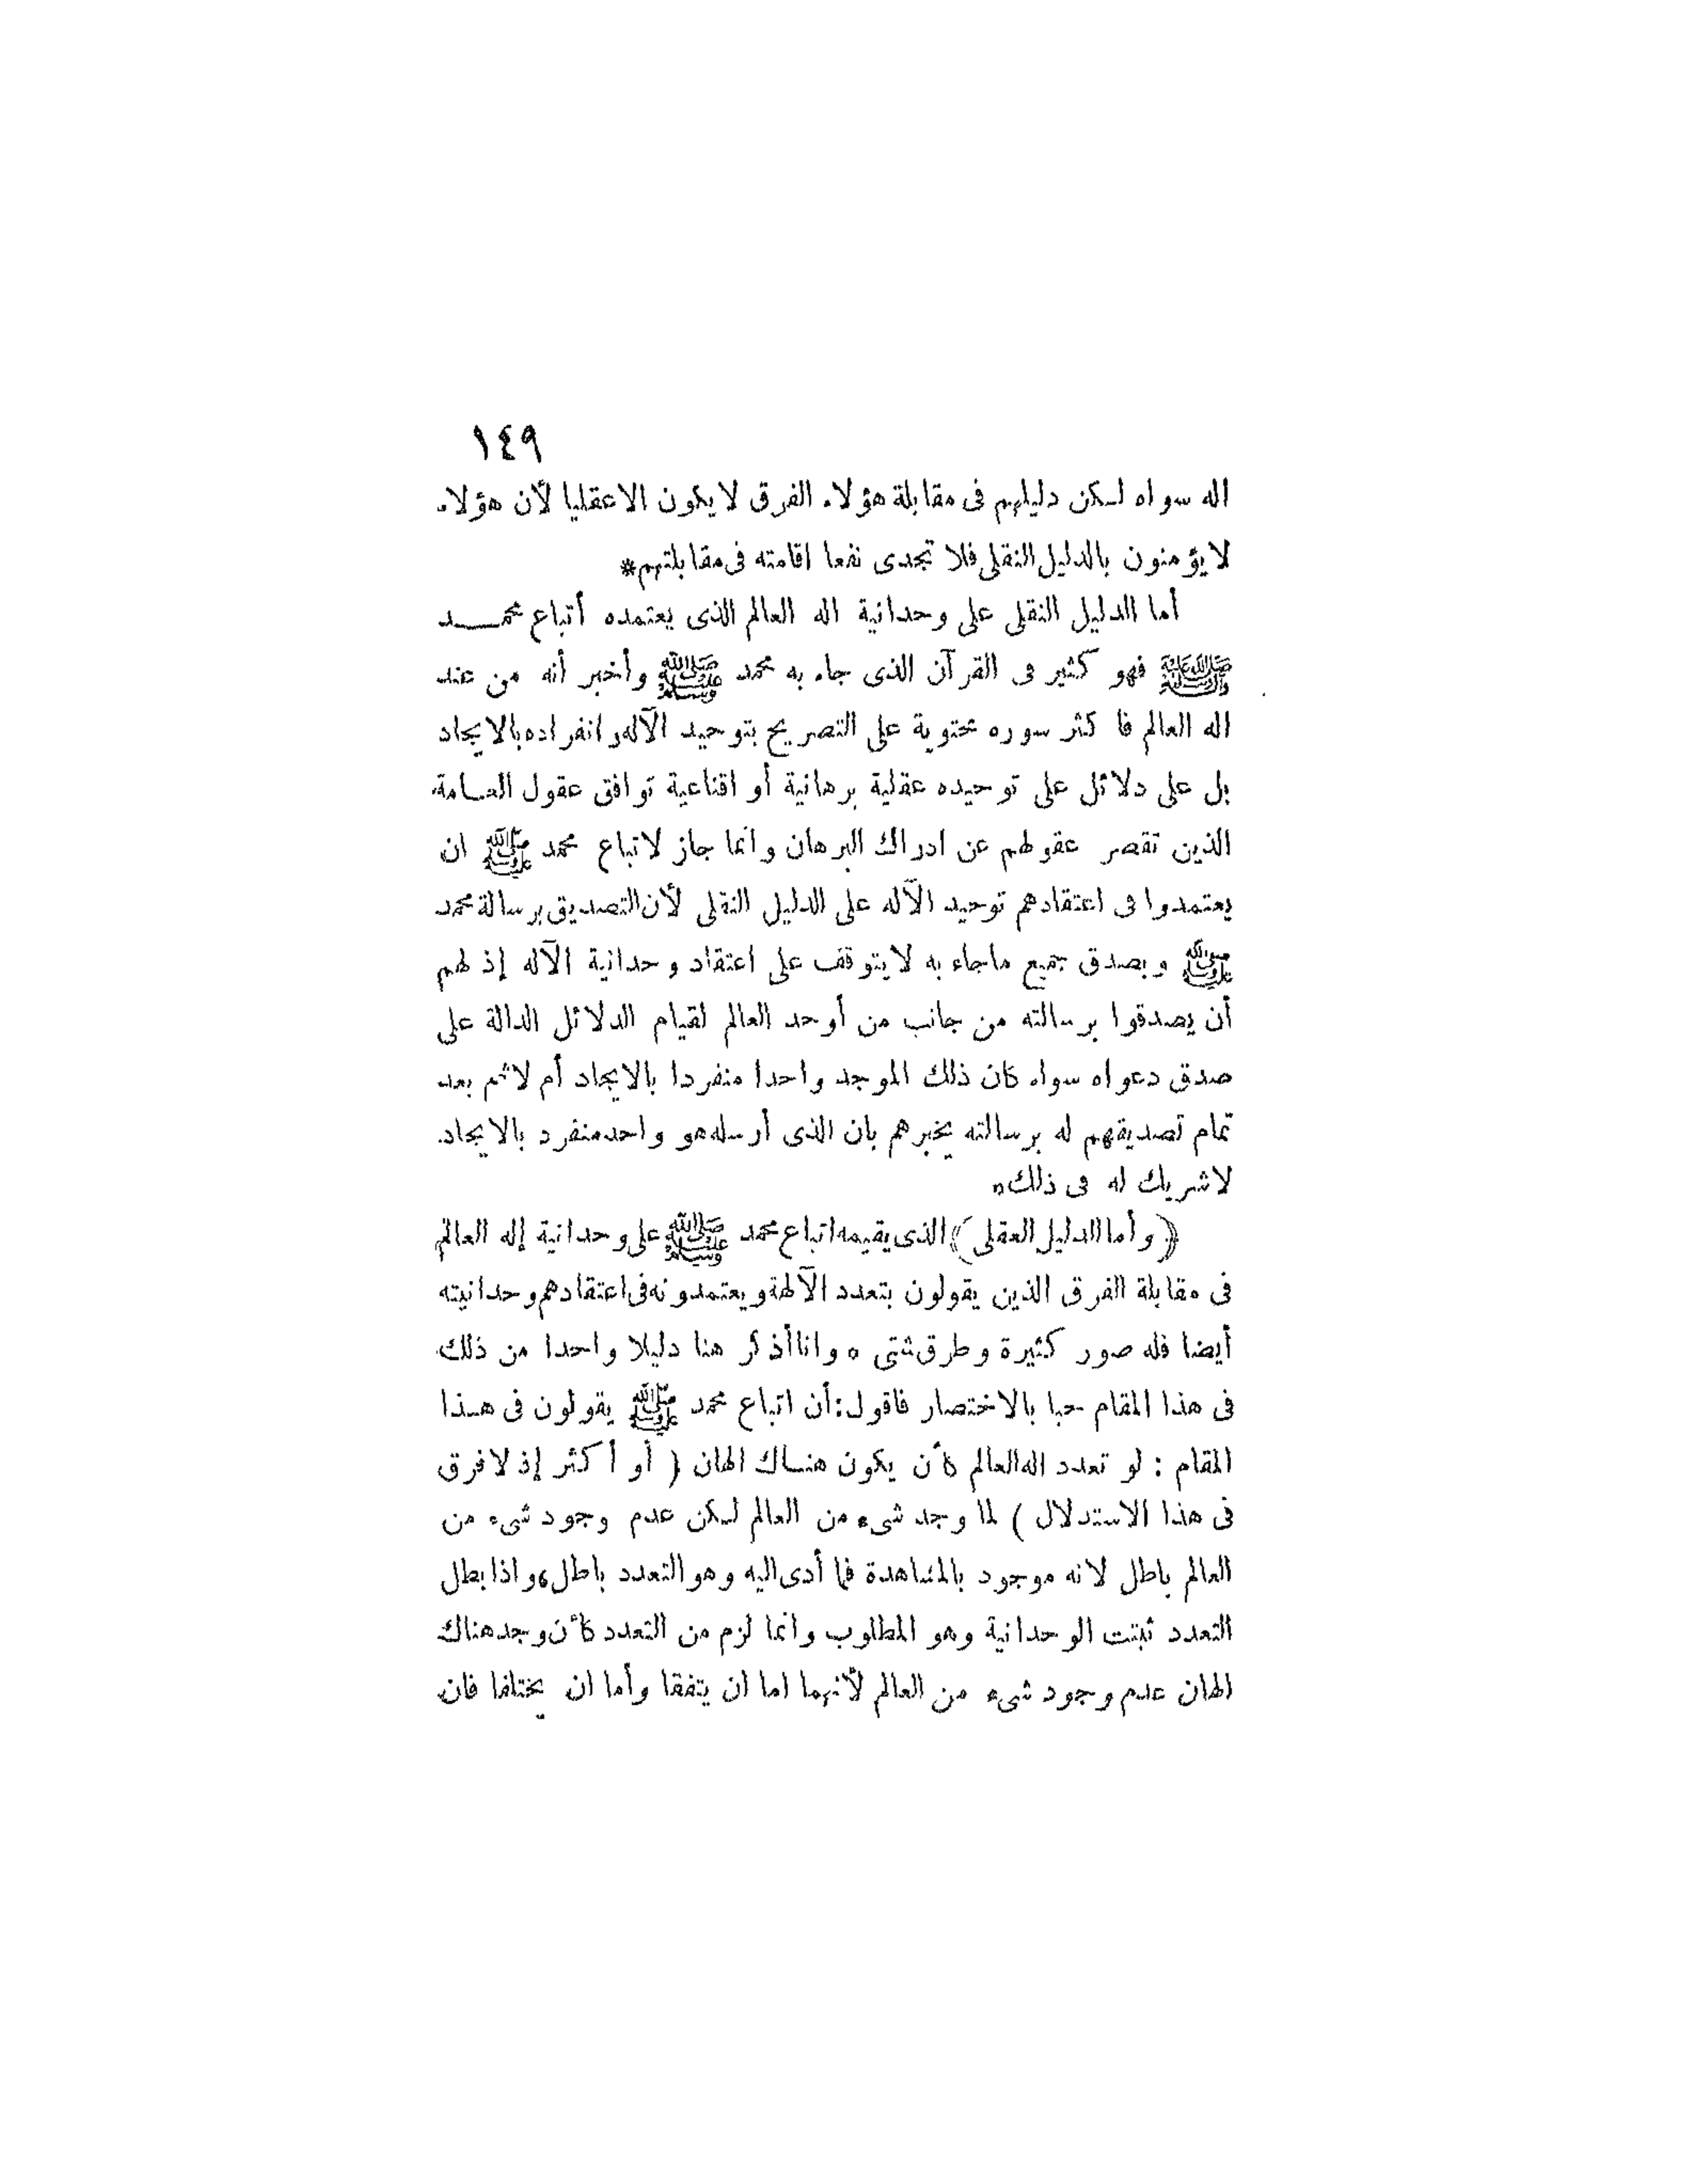 ١٤٩
اله سواه لكن دليلهم فى مقابلة هؤلاء الفرق لا يكون الا عقليا لأن هؤلاء
لا يؤمنون بالدليل النقلى فلا تجدى نفعا اقامته فى مقابلتهم*
أما الدليل النقلى على وحدانية اله العالم الذى يعتمده أتباع محمــد
ﷺ فهو كثير فى القرآن الذى جاء به محمد ﷺ وأخبر أنه من عند
اله العالم فا كثر سوره محتوية على التصريح بتوحيد الآله وانفراده بالايجاد
بل على دلائل على توحيده عقلية برهانية أو اقناعية توافق عقول العـامة
الذين تقصر عقولهم عن ادراك البرهان وانما جاز لاتباع محمد ﷺ ان
يعتمدوا فى اعتقادهم توحيد الآله على الدليل النقلى لأن التصديق برسالة محمد
ﷺ وبصدق جميع ماجاء به لا يتوقف على اعتقاد وحدانية الآله إذ لهم
أن يصدقوا برسالته من جانب من أوحد العالم لقيام الدلائل الدالة على
صدق دعواه سواء كان ذلك الموجد واحدا منفردا بالايجاد أم لا ثم بعد
تمام تصديقهم له برسالته يخبرهم بان الذى أرسله هو واحد منفرد بالايجاد
لا شريك له فى ذلك
﴿ وأما الدليل العقلى ﴾ الذى يقيمه اتباع محمد ﷺ على وحدانية إله العالم
فى مقابلة الفرق الذين يقولون بتعدد الآلهة ويعتمدونه فى اعتقادهم وحدانيته
أيضا فله صور كثيرة وطرق شتى ٥ وانا أذ كر هنا دليلا واحدا من ذلك
فى هذا المقام حبا بالاختصار فاقول: أن اتباع محمد ﷺ يقولون فى هـذا
المقام : لو تعدد اله العالم كأن يكون هنـاك الهان ( أو أكثر إذ لا فرق
فى هذا الاستدلال ) لما وجد شىء من العالم لكن عدم وجود شىء من
العالم باطل لانه موجود بالمشاهدة فما أدى اليه وهو التعدد باطل، واذا بطل
التعدد ثبتت الوحدانية وهو المطلوب وانما لزم من التعدد كأن وجد هناك
الهان عدم وجود شىء من العالم لأنهما اما ان يتفقا وأما ان يختلفا فان